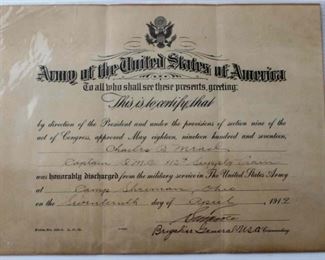 Army of the United States of America
To all who shall see these presents, greeting:
This is to certify that
by direction of the President and under the provisions of section nine of the
act of Congress, approved May eighteen, nineteen hundred and seventeen,
Charles
Captain 112 Supply Train
was honorably discharged from the military service in The United States Army
at Camp Sherman, Ohio
on the Seventeenth day of April 1919
Brigadier General USA Commanding